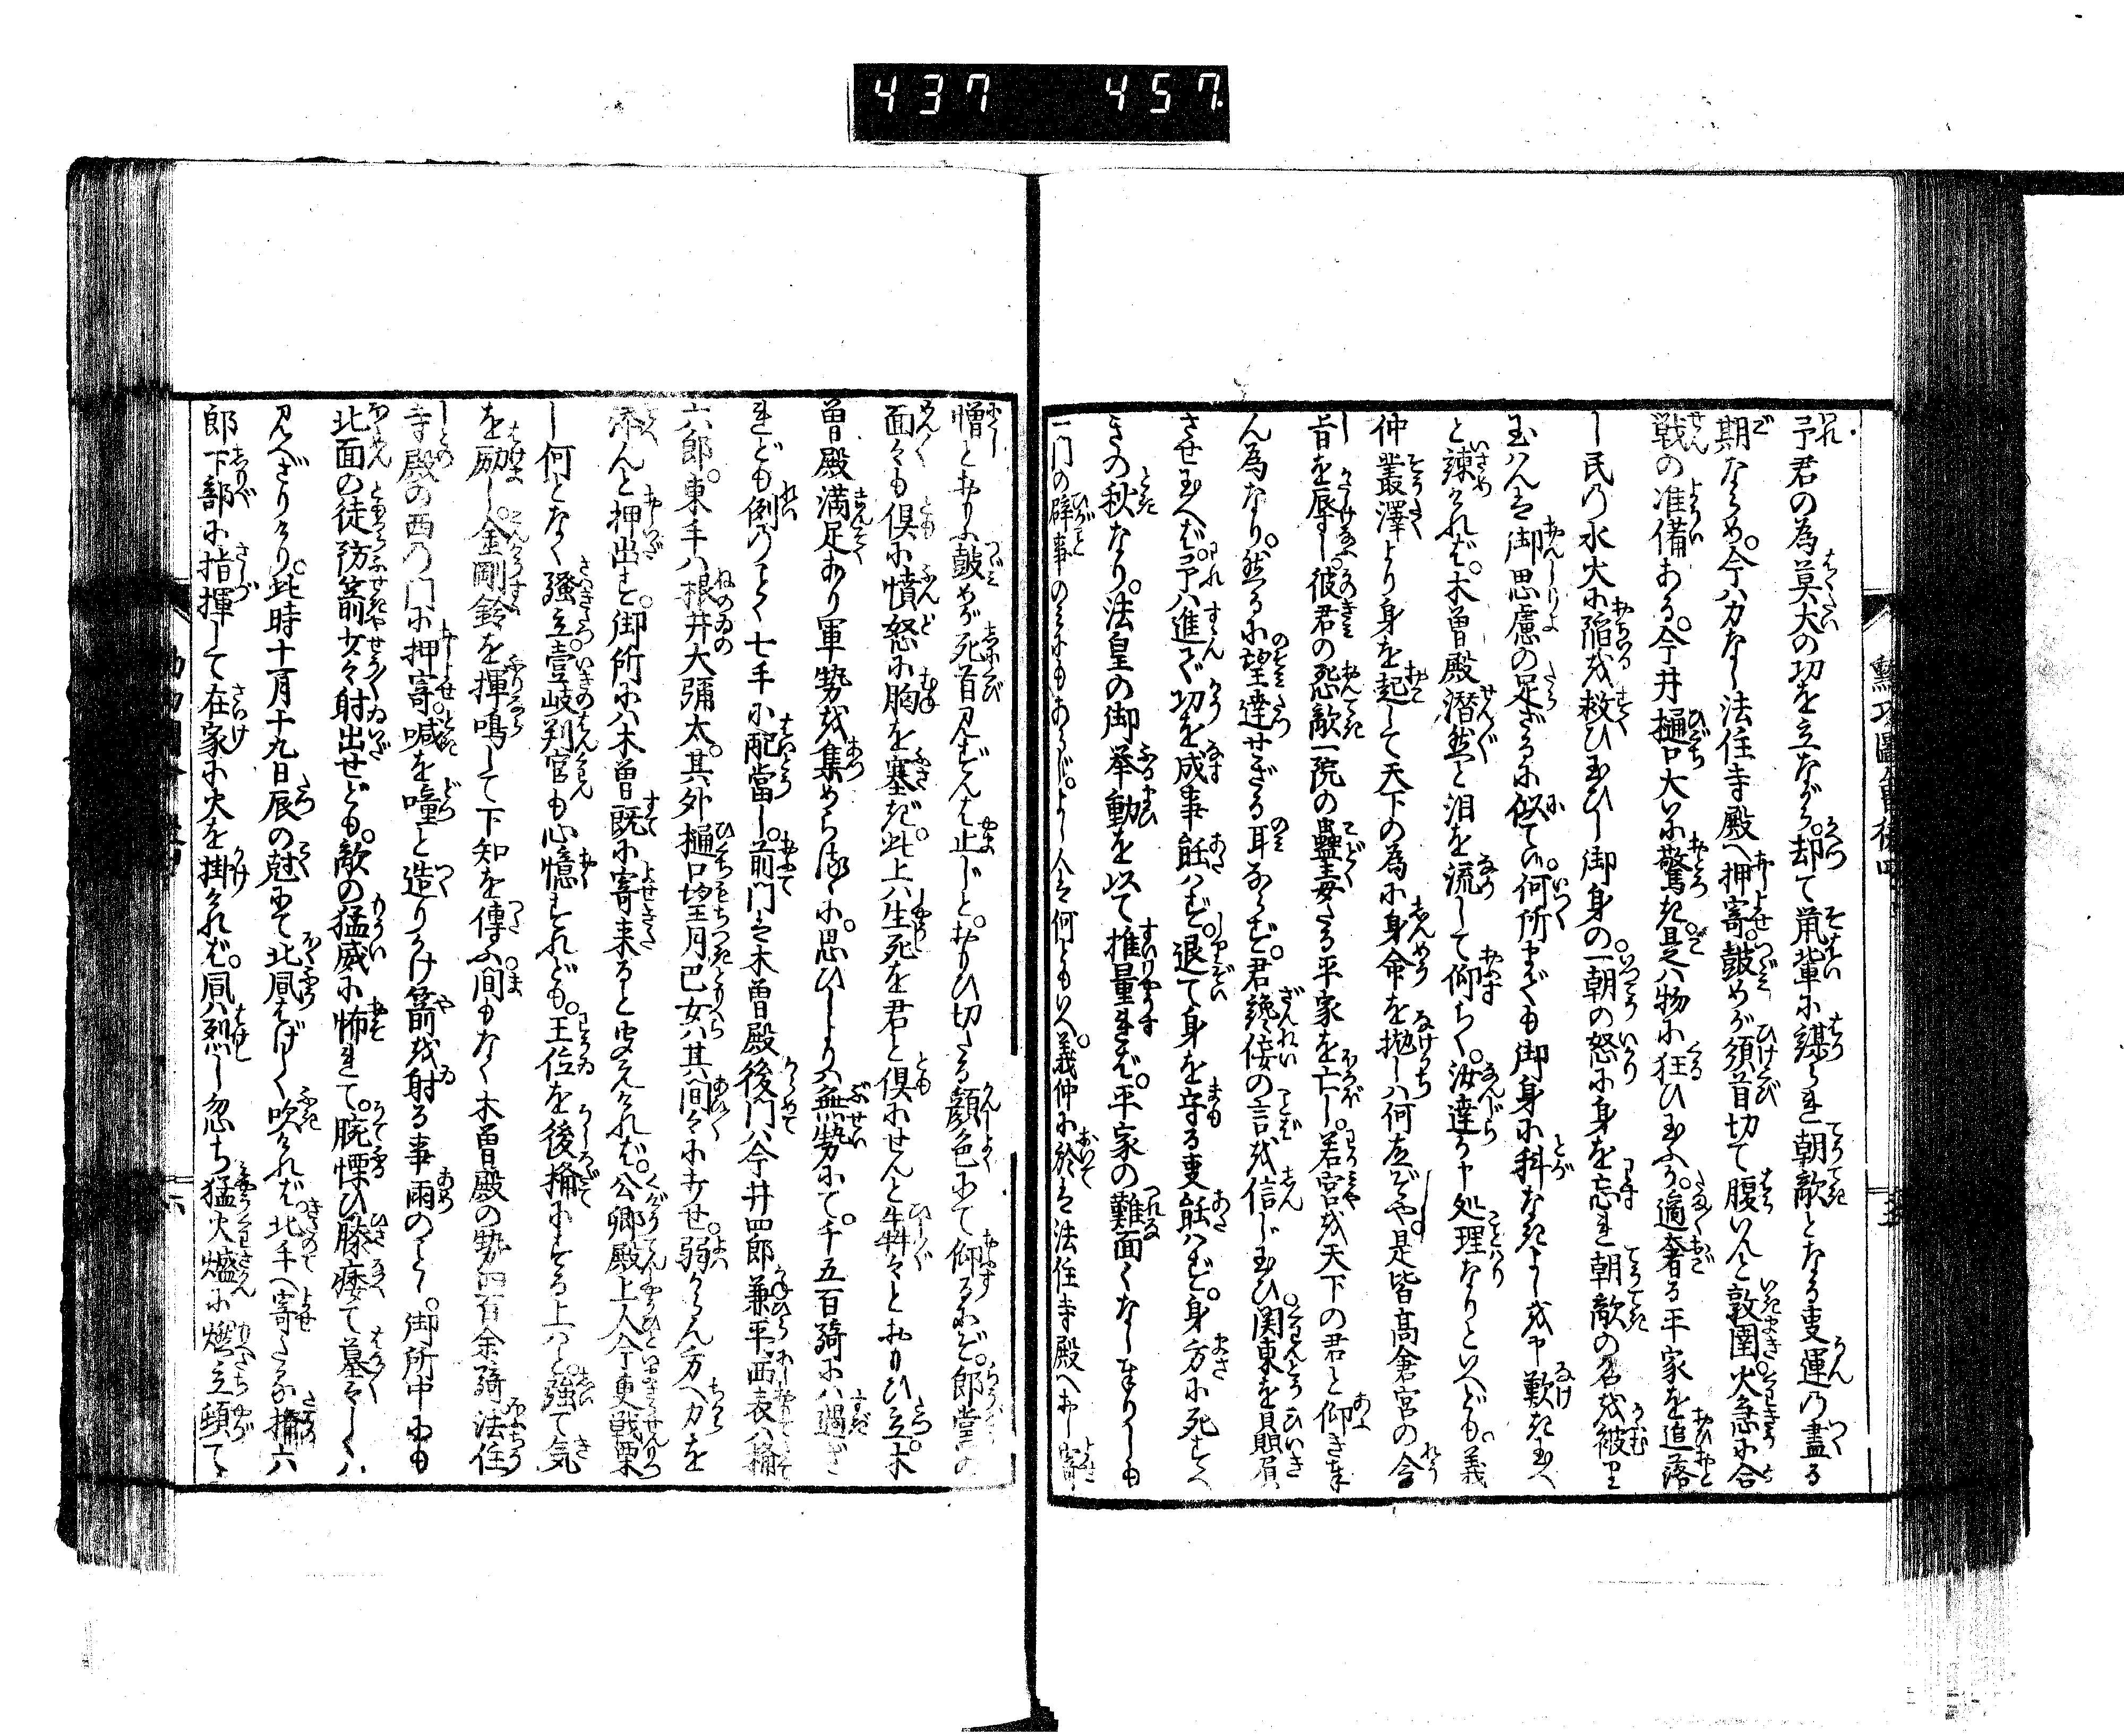 437 457
勲功圖會後四
予君の為莫大の功を立ながら。却て鼠輩に謀られ朝敵となる事運の盡る
期ならめ。今ハ力なし法住寺殿へ押寄。鼓めが須首切て腹いんと敦圉。火急に合
戦の准備ある。今井樋口大いに驚き。是ハ物に狂ひ玉ふか。適奢る平家を追落
し民の水火に陥を救ひ玉ひし御身の。一朝の怒に身を忘れ朝敵の名を被り
玉ハんは御思慮の足ざるに似て候。何所までも御身に科なきよしを申歎き玉へ
と諌けれバ。木曽殿潜然と泪を流して仰らく。汝達が申処理なりといへども。義
仲叢澤より身を起して天下の為に身命を抛しハ何故ぞや。是皆高倉宮の令
旨を辱し。彼君の怨敵一院の蠱毒たる平家を亡し。若宮を天下の君と仰き奉
ん為なり。然るに望達せざる耳ならず。君讒佞の言を信じ玉ひ関東を贔屓
させ玉へバ。予ハ進で功を成事能ハず。退て身を守る事能ハず。身方に死すべ
きの秋なり。法皇の御挙動を以て推量れバ。平家の難面くなし奉りしも
一門の僻事のミにもあらじ。よし人は何ともいへ。義仲に於は法住寺殿へおし寄
憎と思ふ鼓めが死首見ずんば止じと。思ひ切たる顔色にて仰るにぞ。郎黨の
面々も倶に憤怒に胸を塞ぎ。此上ハ生死を君と倶にせんと犇々とおもひ立。木
曽殿満足あり軍勢を集めらるゝに。思ひしよりハ無勢にて。千五百騎にハ過ざ
れども例のごとく七手に配當し。前門は木曽殿後門ハ今井四郎兼平。西表ハ楯
六郎。東手ハ根井大彌太。其外樋口望月巴女ハ其間々に寄せ。弱からん方へ力を
添んと押出す。御所にハ木曽既に寄来ると聞えけれバ。公卿殿上人今更戦栗
し何となく騒立。壹岐判官も心憶すれども。王位を後楯にする上ハと。強て気
を励し。金剛鈴を揮鳴して下知を傳ふ。間もなく木曽殿の勢四百余騎法住
寺殿の西の门に押寄。喊を噇と造りかけ箭を射る事雨のごとし。御所中にも
北面の徒防箭少々射出せども。敵の猛威に怖れて。腕慄ひ膝痿て墓々しくハ
見へざりけり。此時十一月十九日辰の尅にて北風はげしく吹けれバ。北手へ寄たる楯六
郎下部に指揮して在家に火を掛けれバ。風ハ烈し忽ち猛火熾に燃立頻て
六